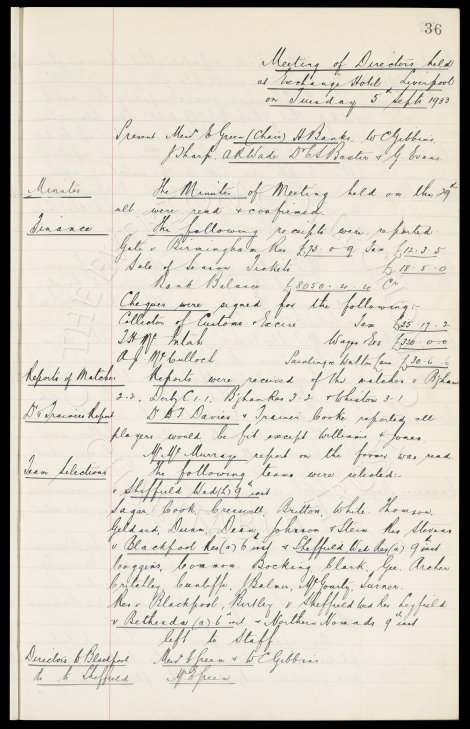 36
Meeting of Directors held
at Exchange Hotel, Liverpool
on Tuesday 5th Septr 1933
Present Messrs E Green (Chair) H Banks. W C Gibbins.
J Sharp. A R Wade Dr C S Baxter & G. Evans.
Minutes The Minutes of Meeting held on the 29th
ult were read & confirmed.
Finance The following receipts were reported
Gate v Birmingham Res £73 - 0 - 9 Tax £12. 3. 5
Sale of Season Tickets £18. 5. 0
Bank Balance £8050. 4. 4 Cr
Cheques were signed for the following:-
Collector of Customs & Excise Tax £25. 17. 2
T H McIntosh Wages Exs £320. 0. 0
A J McCulloch Paintings Walton Lane £30. 6. 6
Reports of Matches Reports were received of the matches v B'gham
2-2, Derby C 1-1, B'gham Res 3-2 & Wheaton 3-1
Dr & Trainers Report Dr D T Davies & Trainer Cooke reported all
players would be fit except Williams & Jones.
Mr McMurray report on the former was read.
Team Selections The following teams were selected:-
v Sheffield Wed (h) 9th inst
Sagar, Cook, Cresswell, Britton, White, Thomson,
Geldard, Dunn, Dean, Johnson & Stein Res Stevens
v Blackpool Res (a) 6th inst & Sheffield Wed Res (a) 9th inst
Coggins, Common. Bocking Clark, Gee, Archer
Critchley Cunliffe, Balmer, McGourty, Turner.
Res v Blackpool, Hurdley, v Sheffield Wed Res Layfield
v Bethesda (a) 6 inst & Northern Nomads 9 inst
left to Staff
Directors to Blackpool Messrs E Green & W C Gibbins
to Sheffield Mr E Green